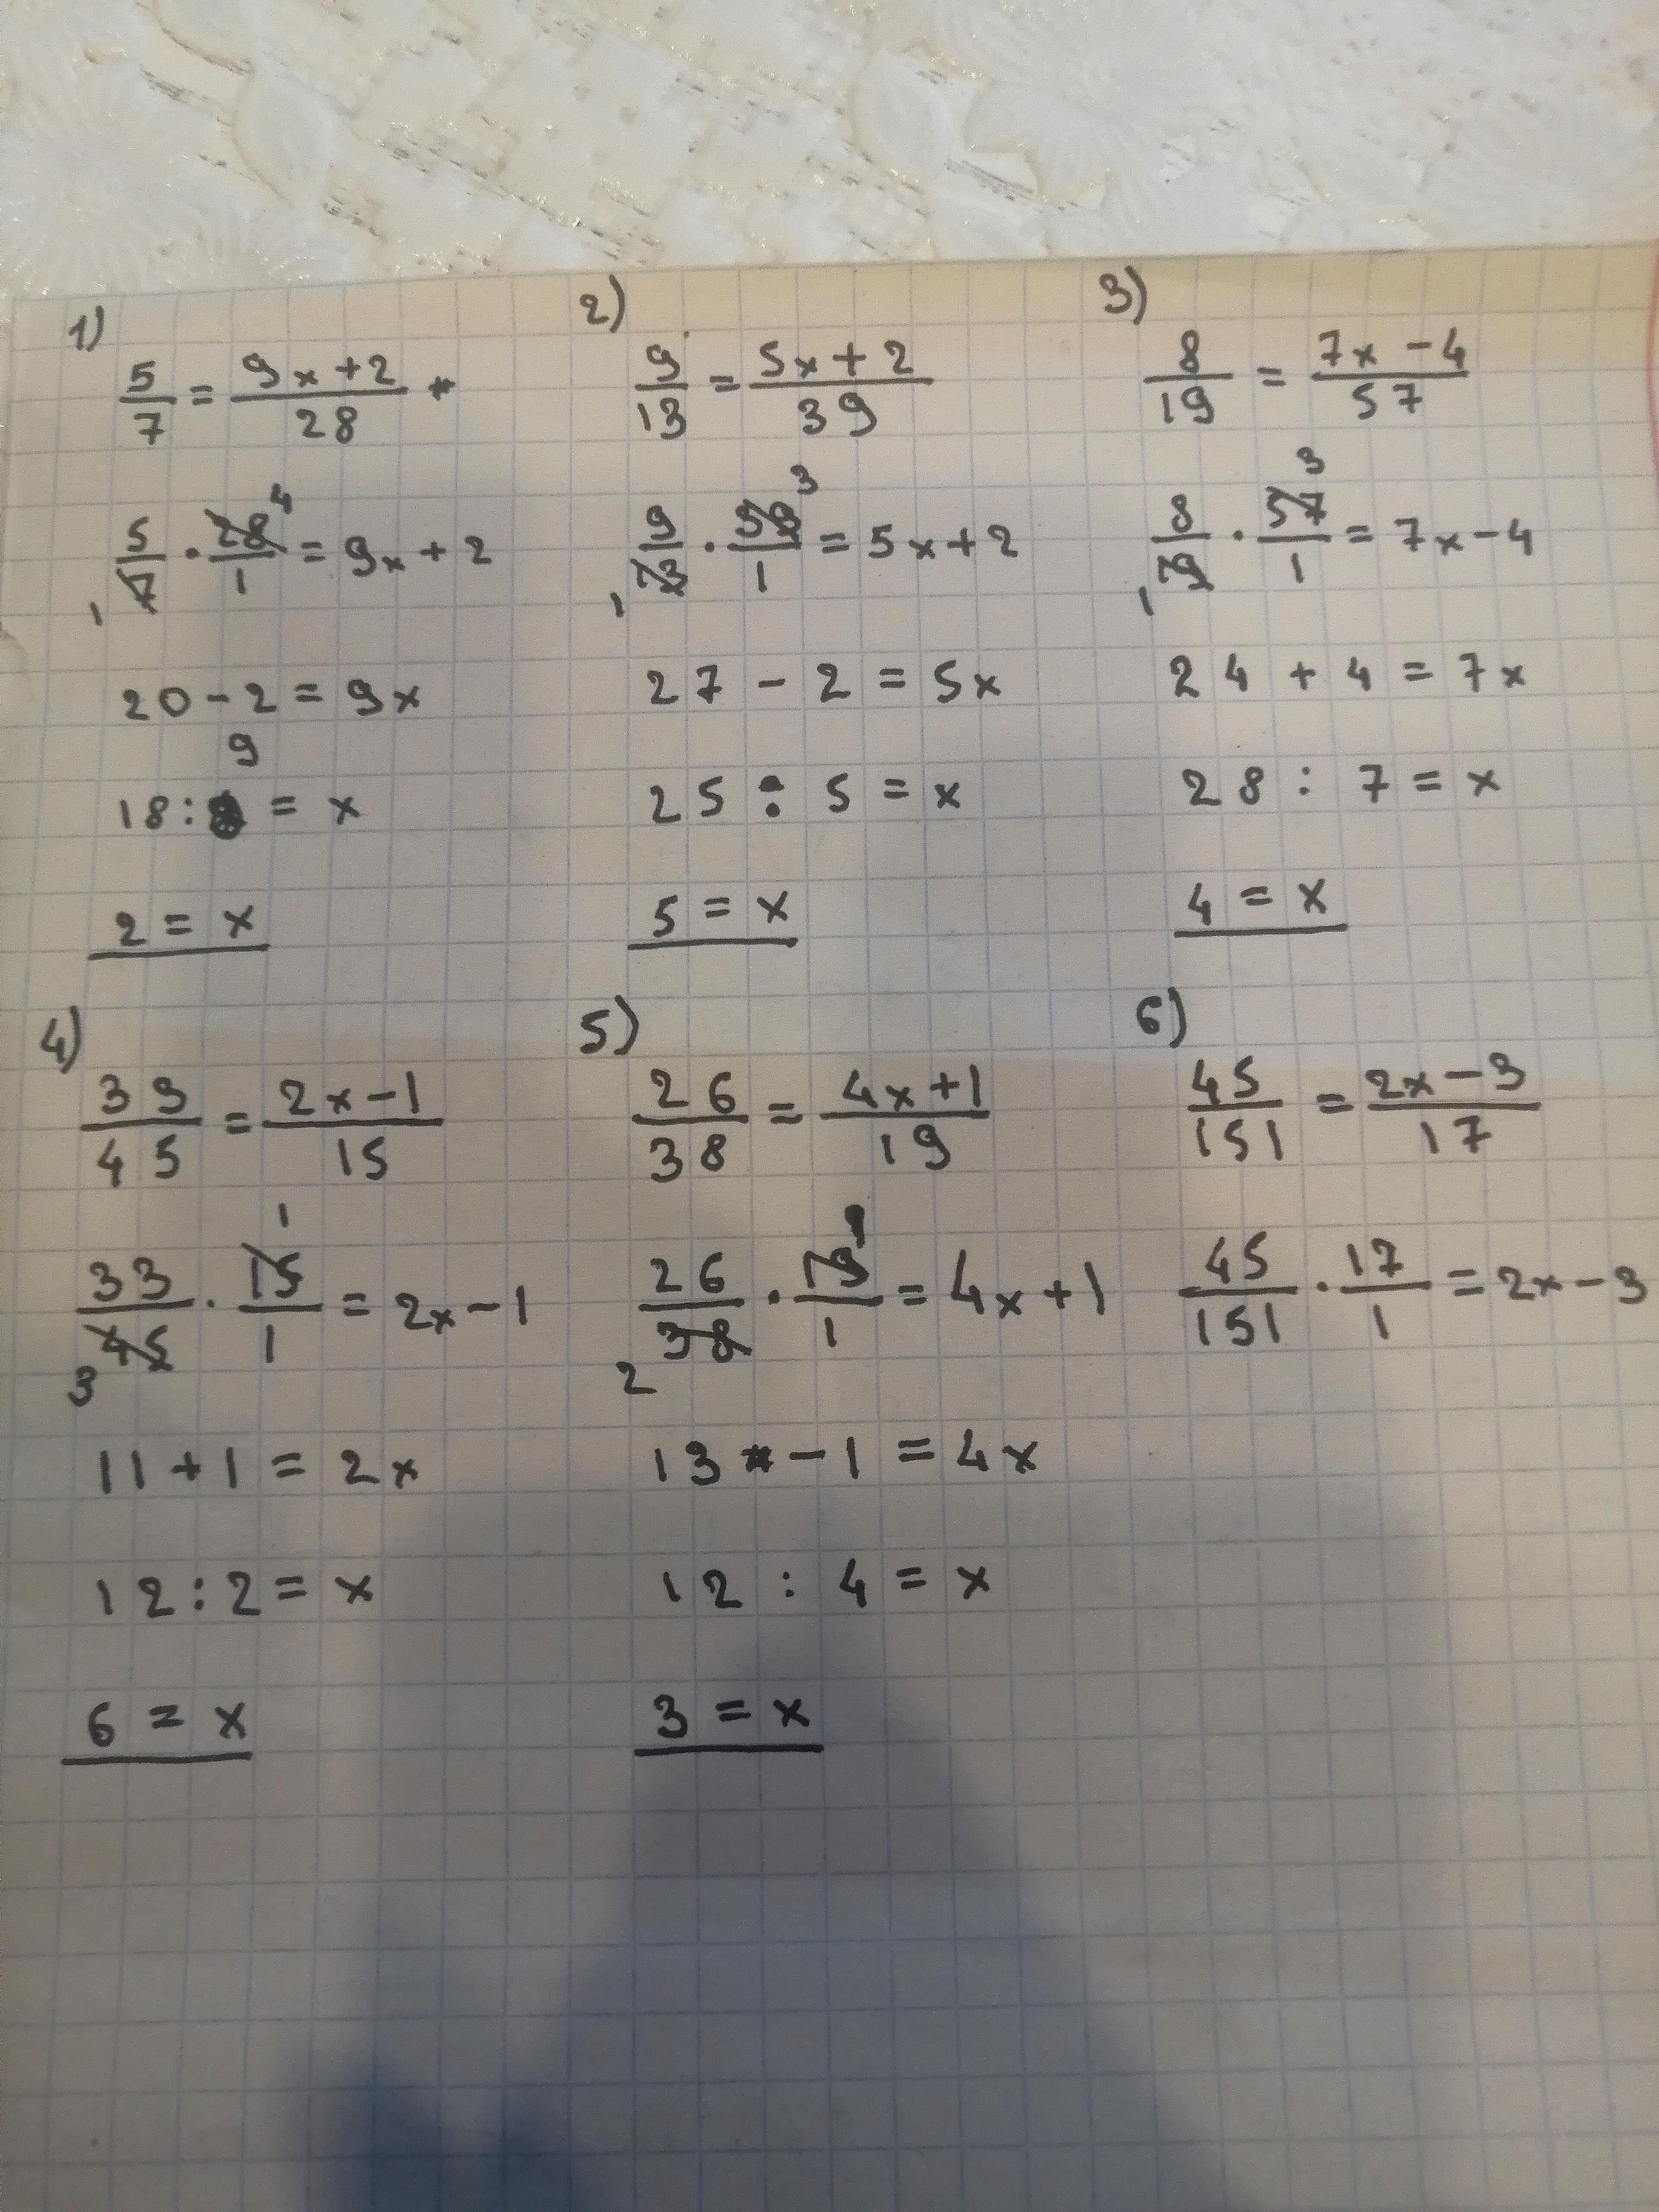 1)
5/7 = (9x + 2)/28
4
5/7 · 28/1 = 9x + 2
1
20 - 2 = 9x
9
18 : = x
2 = x
2)
9/13 = (5x + 2)/39
3
9/13 · 39/1 = 5x + 2
1
27 - 2 = 5x
25 : 5 = x
5 = x
3)
8/19 = (7x - 4)/57
3
8/19 · 57/1 = 7x - 4
1
24 + 4 = 7x
28 : 7 = x
4 = x
4)
33/45 = (2x - 1)/15
1
33/45 · 15/1 = 2x - 1
3
11 + 1 = 2x
12 : 2 = x
6 = x
5)
26/38 = (4x + 1)/19
1
26/38 · 19/1 = 4x + 1
2
13 - 1 = 4x
12 : 4 = x
3 = x
6)
45/151 = (2x - 3)/17
45/151 · 17/1 = 2x - 3